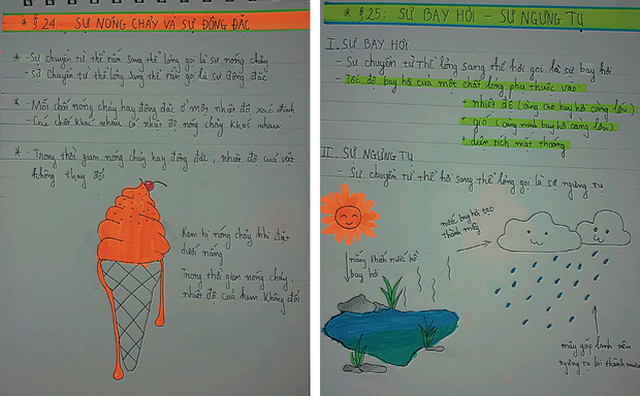 * § 24: SỰ NÓNG CHẢY VÀ SỰ ĐÔNG ĐẶC
* - Sự chuyển từ thể rắn sang thể lỏng gọi là sự nóng chảy
- Sự chuyển từ thể lỏng sang thể rắn gọi là sự đông đặc
* - Mỗi chất nóng chảy hay đông đặc ở một nhiệt độ xác định
- Các chất khác nhau có nhiệt độ nóng chảy khác nhau
* - Trong thời gian nóng chảy hay đông đặc, nhiệt độ của vật
không thay đổi
Kem bị nóng chảy khi đặt
dưới nắng
Trong thời gian nóng chảy,
nhiệt độ của kem không đổi
* § 25: SỰ BAY HƠI - SỰ NGƯNG TỤ
I. SỰ BAY HƠI
- Sự chuyển từ thể lỏng sang thể hơi gọi là sự bay hơi
- Tốc độ bay hơi của một chất lỏng phụ thuộc vào:
+ nhiệt độ (càng cao bay hơi càng lớn)
+ gió (càng mạnh bay hơi càng lớn)
+ diện tích mặt thoáng
II. SỰ NGƯNG TỤ
- Sự chuyển từ thể hơi sang thể lỏng gọi là sự ngưng tụ
nước bay hơi tạo
thành mây
nắng khiến nước hồ
bay hơi
mây gặp lạnh nên
ngưng tụ lại thành mưa